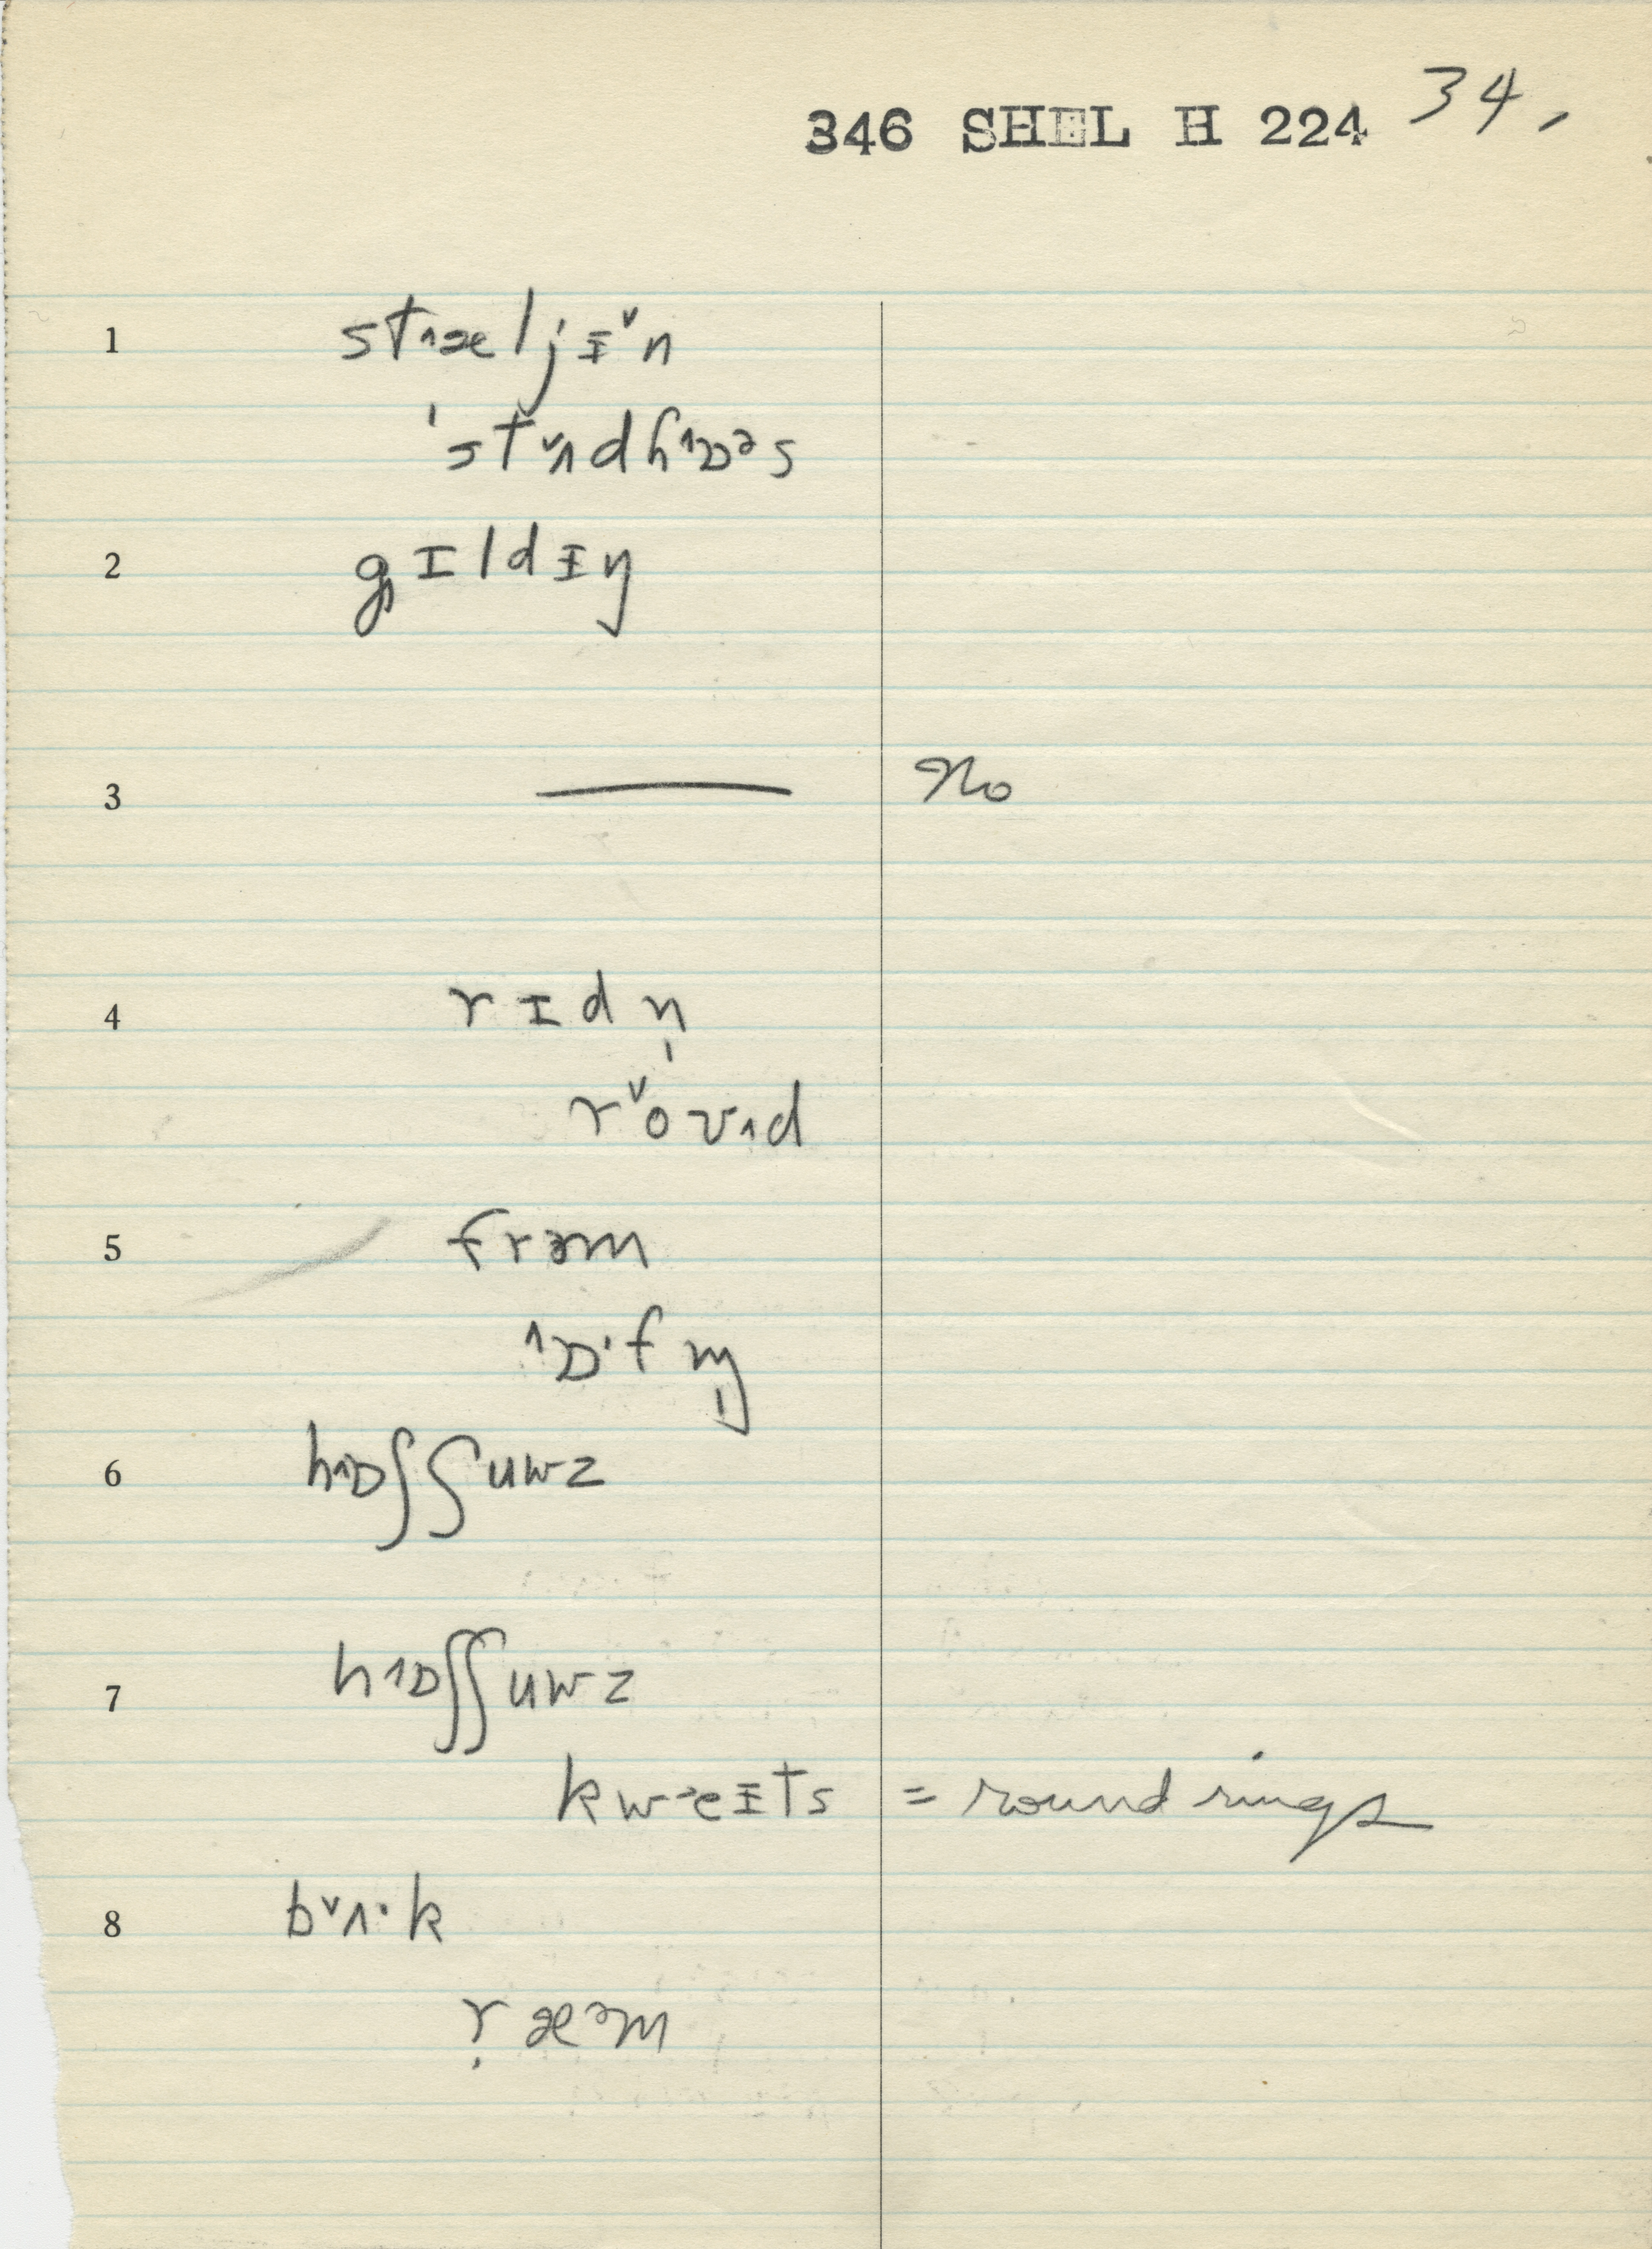 346 SHEL H 224 34.
1 st˄æljɨ˅n
'st˅ʌndh˄ɒᵊs
2 gɪldɨŋ
3 —— No
4 rɪdn̩
r˅ov˄d
5 frəm
˄ɒ·fm̩
6 h˄ɒʃʃuwz
7 h˄ɒʃʃuwz
kw˃eɪts = round rings
8 b˅ʌ·k
ṛæᵊm